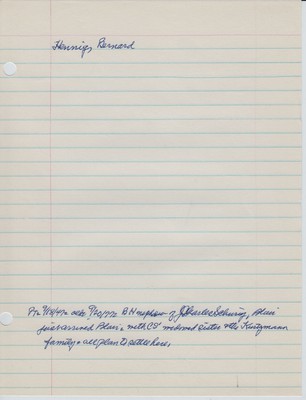 Hennigs, Bernard
Pto 9/18/47c adv 9/20/47c BH nephew of J Charles Schurig, Blair
just arrived Blair with CS' widowed sister & the Kurtzmann
family & all plan to settle here,